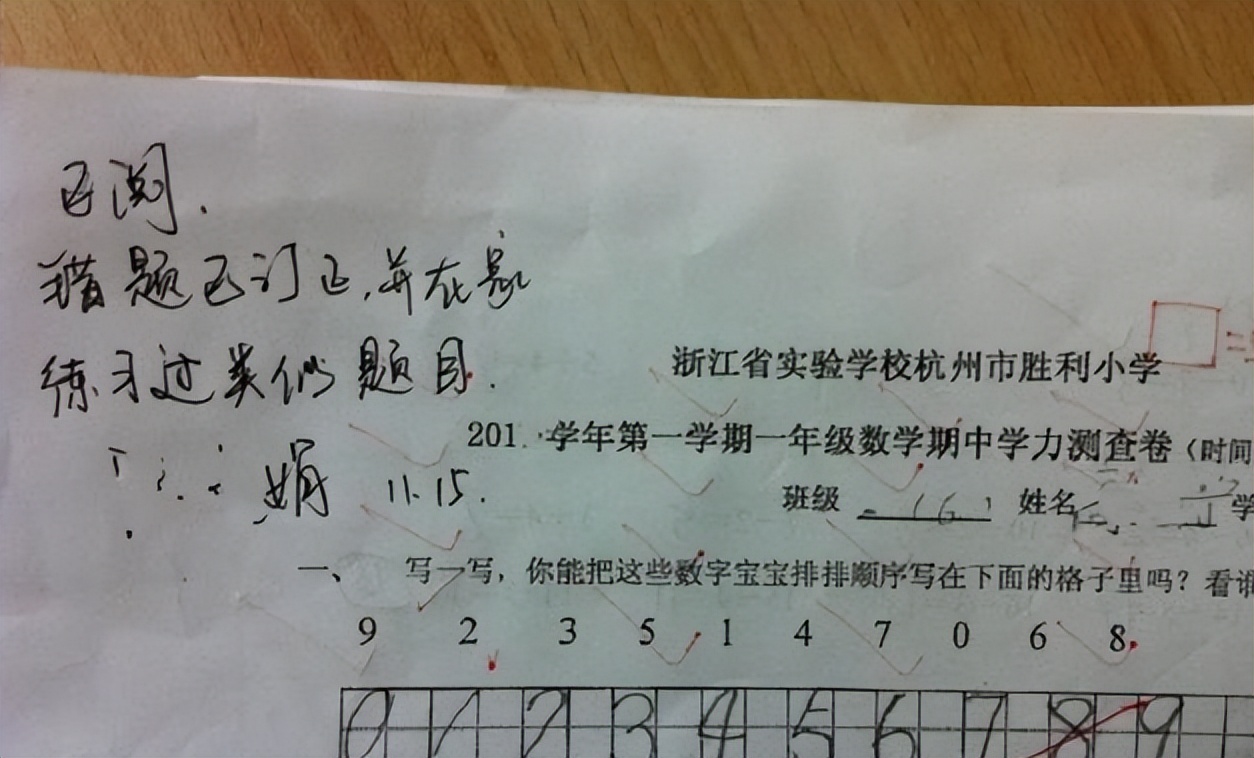 已阅.
错题已订正,并在家
练习过类似题目.
娟 11.15.
浙江省实验学校杭州市胜利小学
201 学年第一学期一年级数学期中学力测查卷(时间
班级 一(6) 姓名 学
一、 写一写,你能把这些数字宝宝排排顺序写在下面的格子里吗?看谁
9 2 3 5 1 4 7 0 6 8
0 1 2 3 4 5 6 7 8 9